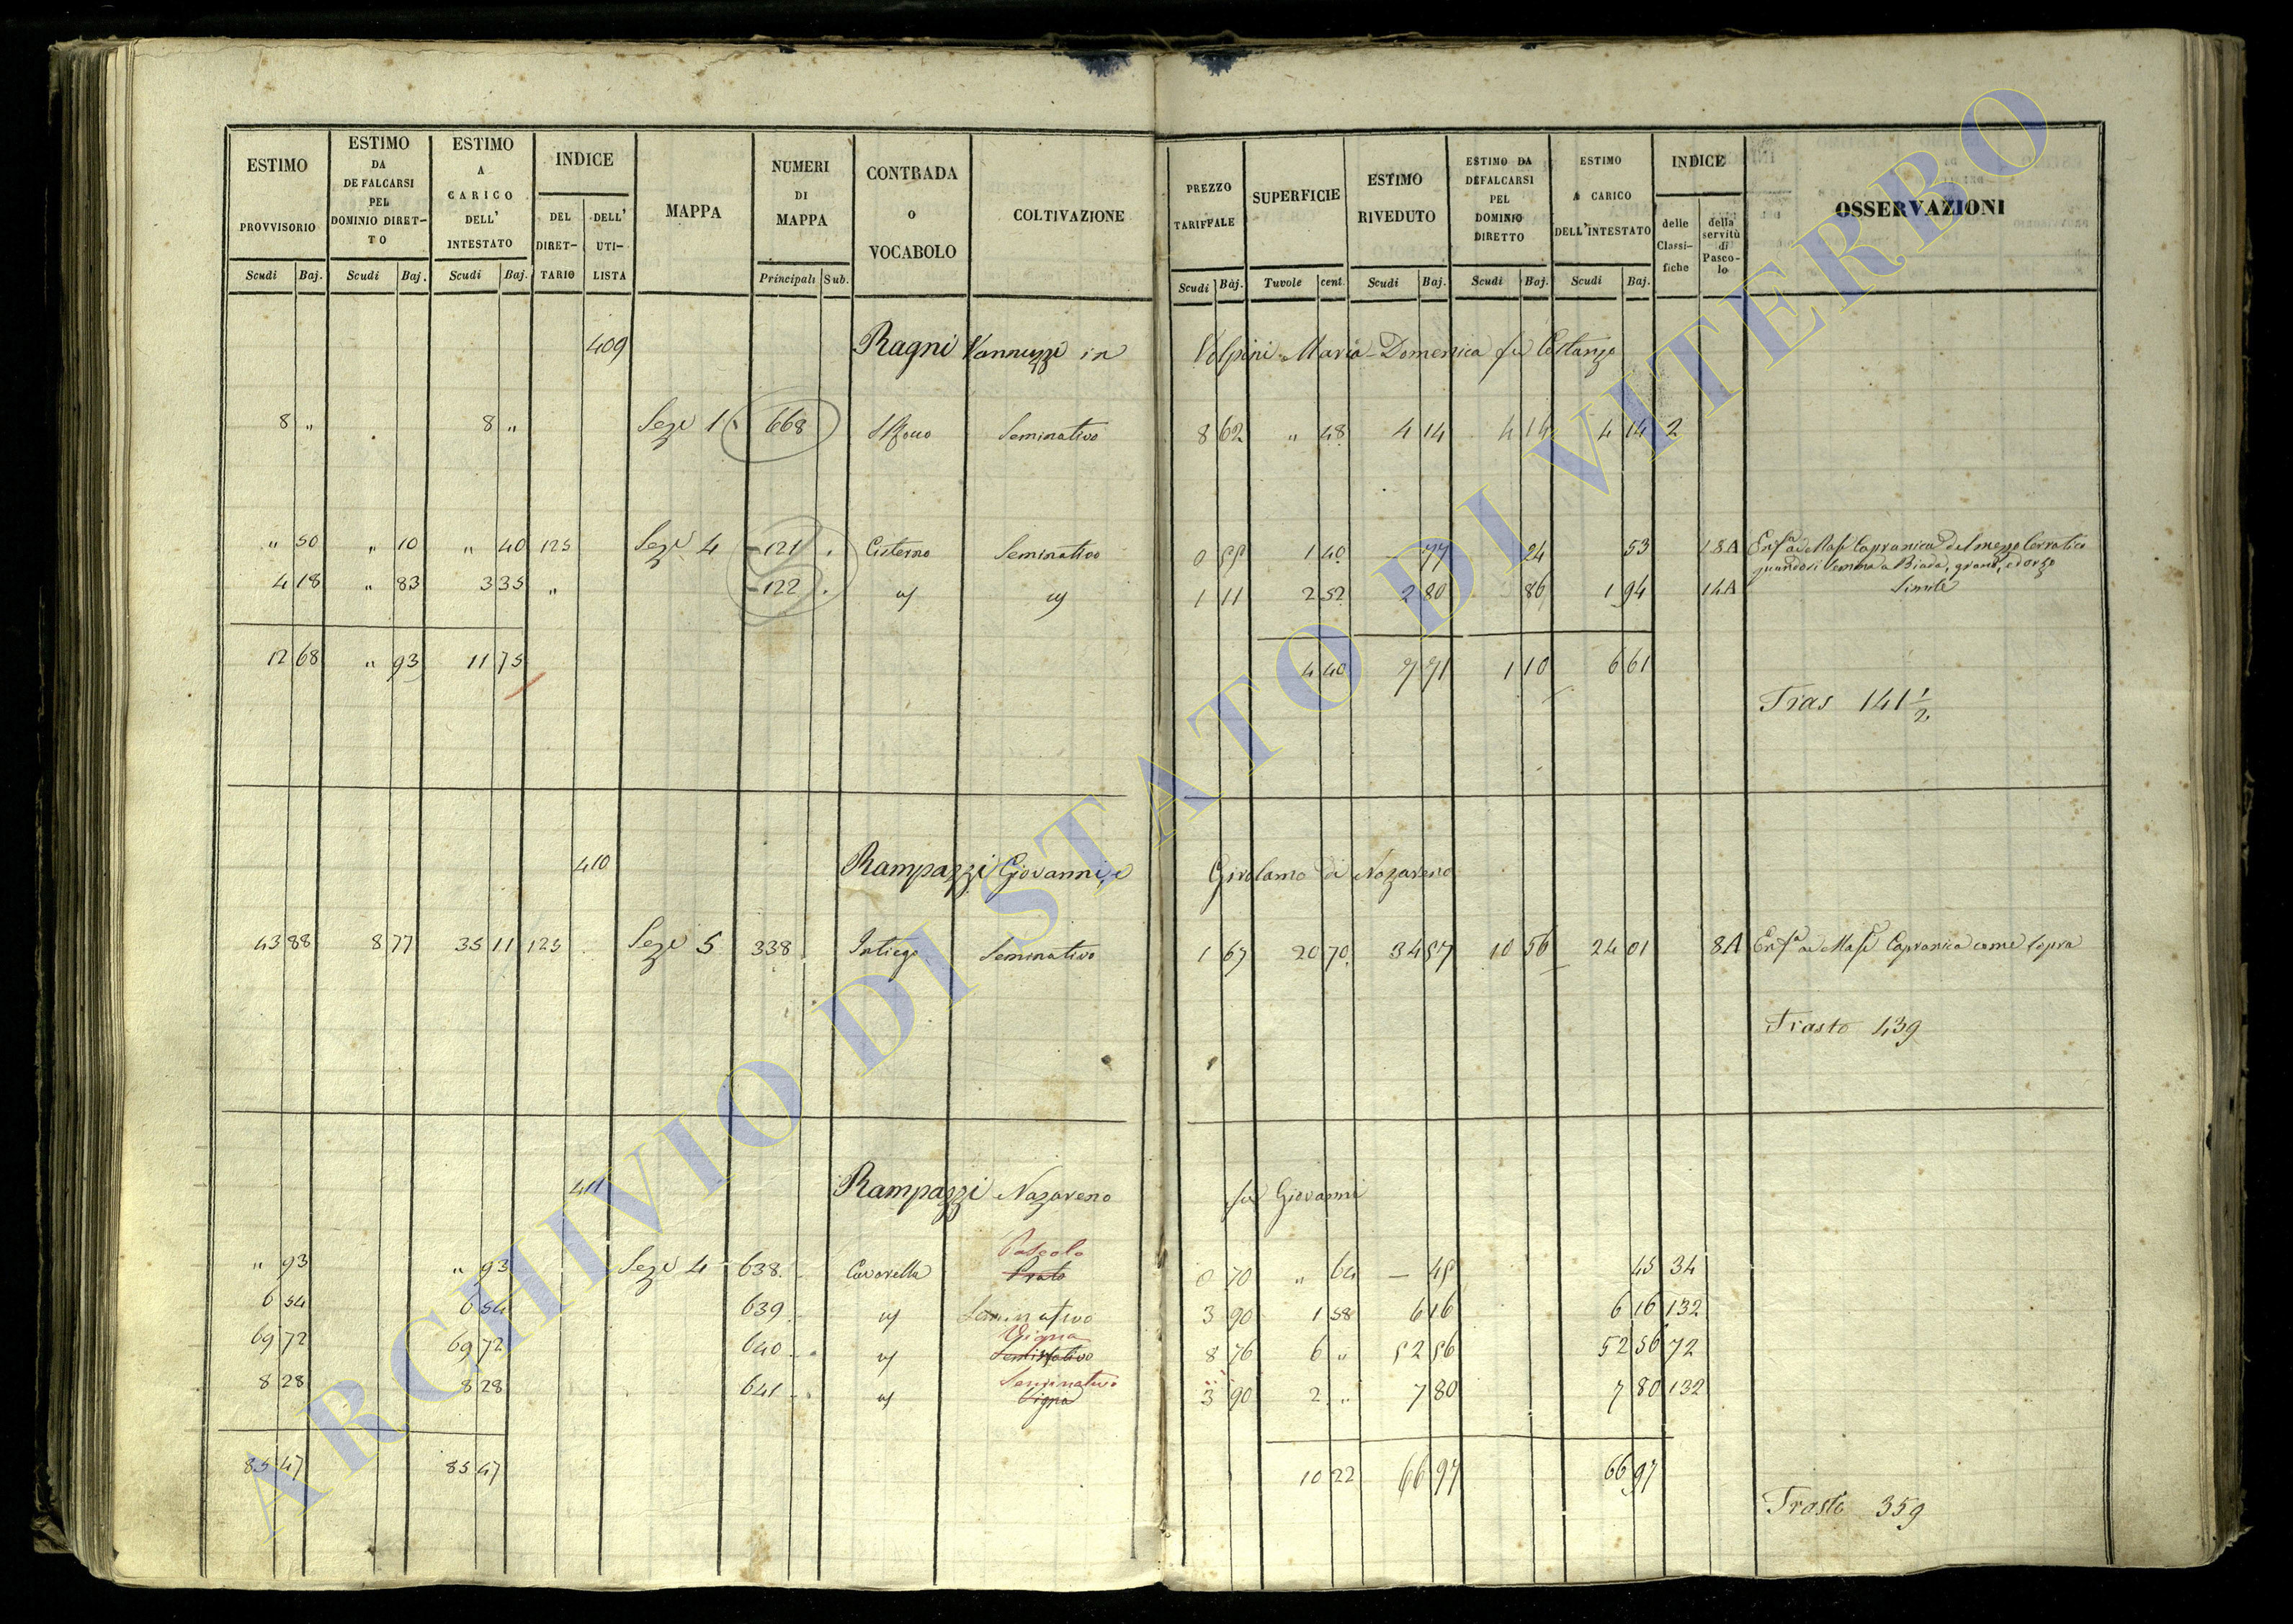 ESTIMO PROVVISORIO Scudi Baj.
ESTIMO DA DEFALCARSI PEL DOMINIO DIRETTO Scudi Baj.
ESTIMO A CARICO DELL' INTESTATO Scudi Baj.
INDICE DEL DIRETTARIO DELL' UTILISTA
MAPPA
NUMERI DI MAPPA Principali Sub.
CONTRADA O VOCABOLO
COLTIVAZIONE
PREZZO TARIFFALE Scudi Baj.
SUPERFICIE Tavole cent.
ESTIMO RIVEDUTO Scudi Baj.
ESTIMO DA DEFALCARSI PEL DOMINIO DIRETTO Scudi Baj.
ESTIMO A CARICO DELL'INTESTATO Scudi Baj.
INDICE delle Classifiche della servitù di Pascolo
OSSERVAZIONI
409 Ragni Vannuzzi in Volpini Maria Domenica fu Costanzo
8 " 8 " Seze 1 668 Seminativo 8 62 " 48 4 14 4 14 4 14 2
" 50 " 10 " 40 125 Seze 4 121 Cisterno Seminativo 0 55 1 40 77 24 53 18A Enfa a Mase Capranica del mezzo Terratico
quandosi Semina a Biada, grano, ed orzo
4 18 " 83 3 35 " 122 1 11 2 52 2 80 86 1 94 14A Simile
12 68 " 93 11 75 4 40 7 71 1 10 6 61
Tras 141 1/2
410 Rampazzi Giovanni, e Girolamo di Nazareno
43 88 8 77 35 11 125 Sezе 5 338 Intiego Seminativo 1 67 20 70 34 57 10 56 24 01 8A Enfa a Mase Capranica come sopra
Trasto 439
411 Rampazzi Nazareno fu Giovanni
Pascolo
" 93 " 93 Sezе 4 638 Cavarella Prato 0 70 " 64 — 45 45 34
6 54 6 54 639 Seminativo 3 90 1 58 6 16 6 16 132
Vigna
69 72 69 72 640 Seminativo 8 76 6 " 52 56 52 56 72
Seminativo
8 28 8 28 641 Vigna 3 90 2 " 7 80 7 80 132
85 47 85 47 10 22 66 97 66 97
Trasto 359
ARCHIVIO DI STATO DI VITERBO